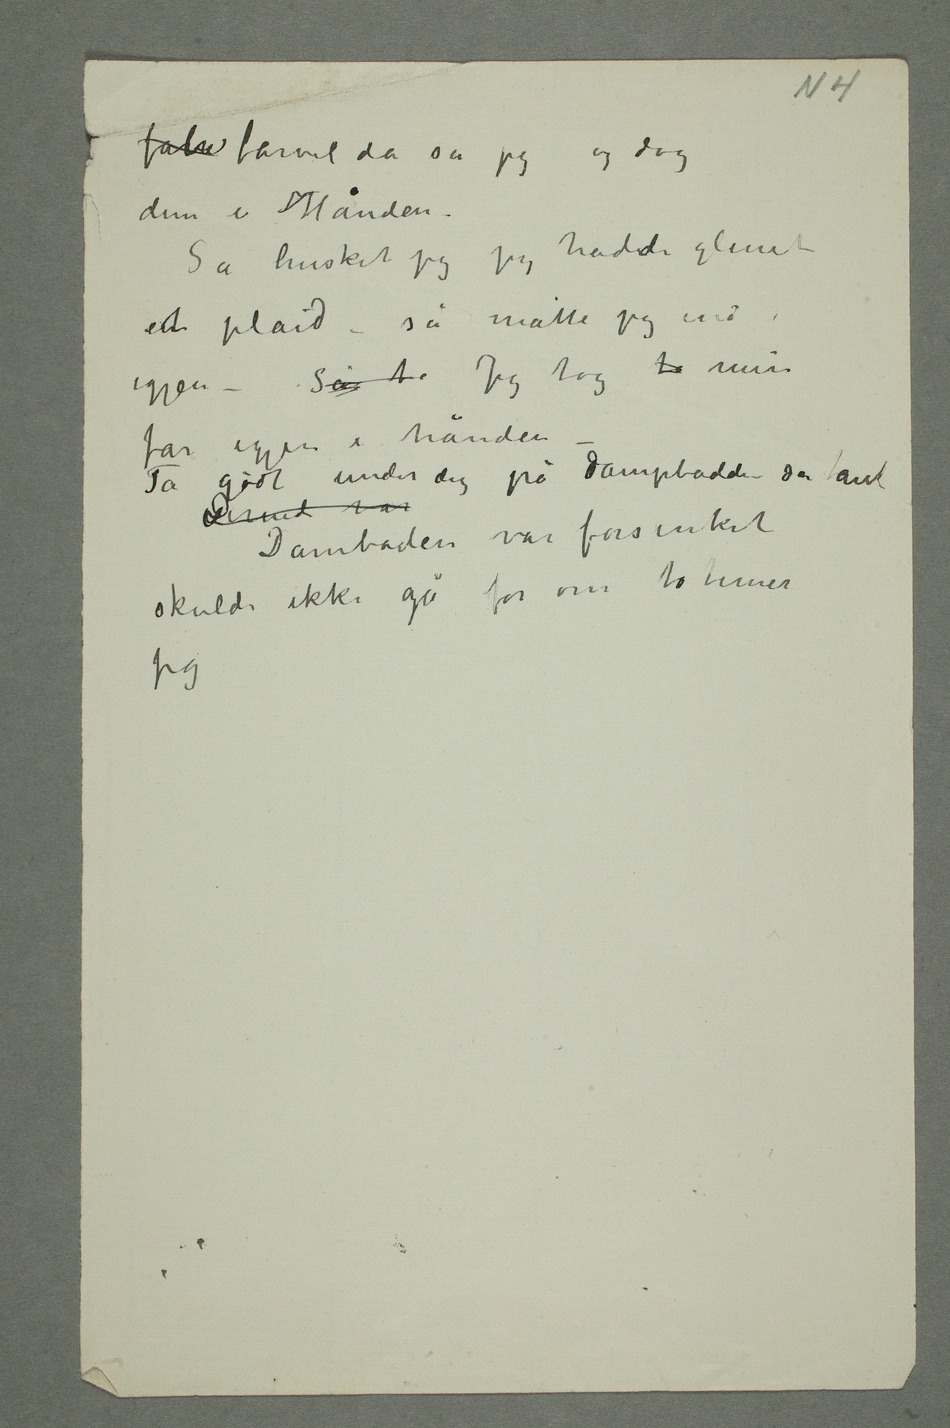 N 4
farvel da sa jeg og tog
dem i Hånden.
Sa husket jeg jeg hadde glemt
et plaid – så måtte jeg ind
igjen – Så to Jeg tog to min
far igjen i hånden –
Ta godt under dig på dampbådden sa tant
Dermed var
Dambåden var forsinket
skulde ikke gå før om to timer
jeg